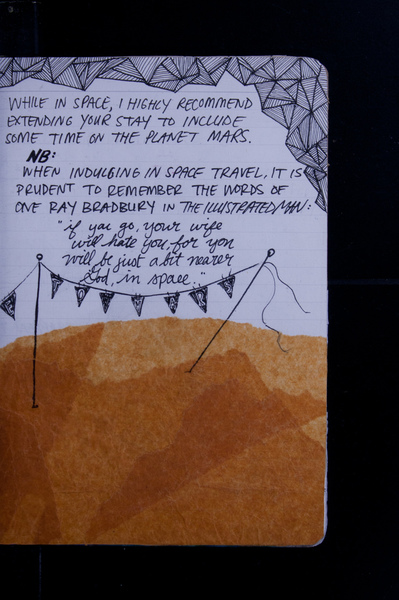 WHILE IN SPACE, I HIGHLY RECOMMEND
EXTENDING YOUR STAY TO INCLUDE
SOME TIME ON THE PLANET MARS.
NB:
WHEN INDULGING IN SPACE TRAVEL, IT IS
PRUDENT TO REMEMBER THE WORDS OF
ONE RAY BRADBURY IN THE ILLUSTRATED MAN:
"if you go, your wife
will hate you, for you
will be just a bit nearer
God, in space."